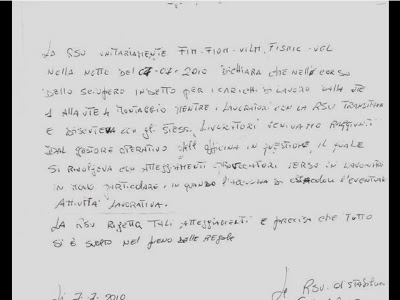 LA RSU UNITARIAMENTE FIM-FIOM-UILM, FISMIC-UGL
NELLA NOTTE DEL 07-07-2010 DICHIARA CHE NELL CORSO
DELLO SCIOPERO INDETTO PER I CARICHI DI LAVORO DALLA UTE
1 ALLA UTE 4 MONTAGGIO MENTRE I LAVORATORI CON LA RSU TRANSITAVA
E DISCUTEVA CON gli STESSI LAVORATORI VENIVANO RAGGIUNTI
DAL GESTORE OPERATIVO DELL OFFICINA IN QUESTIONE, IL QUALE
SI RIVOLGEVA CON ATTEGGIAMENTI PROVOCATORI VERSO UN LAVORATORE
IN MODO PARTICOLARE, IN QUANDO L'ACCUSAVA DI OSTACOLARE L'EVENTUALE
ATTIVITA' LAVORATIVA.
LA RSU RIGETTA TALI ATTEGGIAMENTI E PRECISA CHE TUTTO
SI È SVOLTO NEL PIENO DELLE REGOLE
lì 7-7-2010
La RSU. DI STABILIM